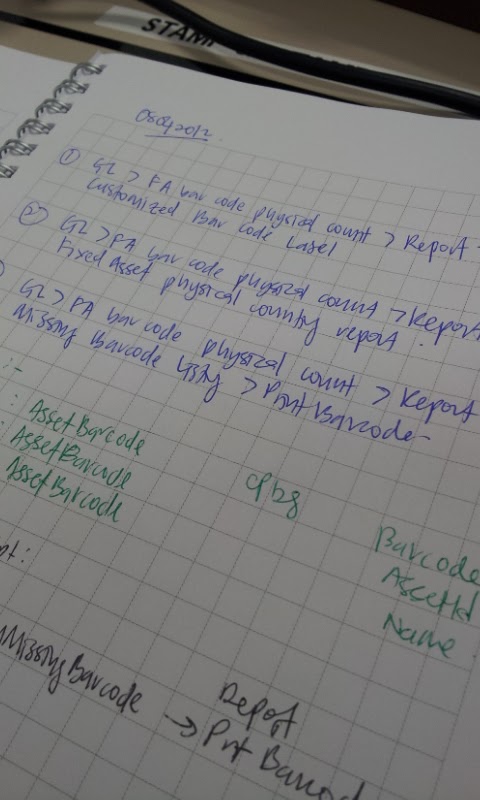 STAM
08042012
① GL > FA bar code physical count > Report
Customized Bar code Label
② GL > FA bar code physical count > Report
Fixed Asset physical county report.
GL > FA bar code physical count > Report
Missing Barcode listing > Print Barcode
:-
: AssetBarcode
: AssetBarcode
AssetBarcode
Barcode
AssetId
Name
MissingBarcode → Report
Prnt Barcod